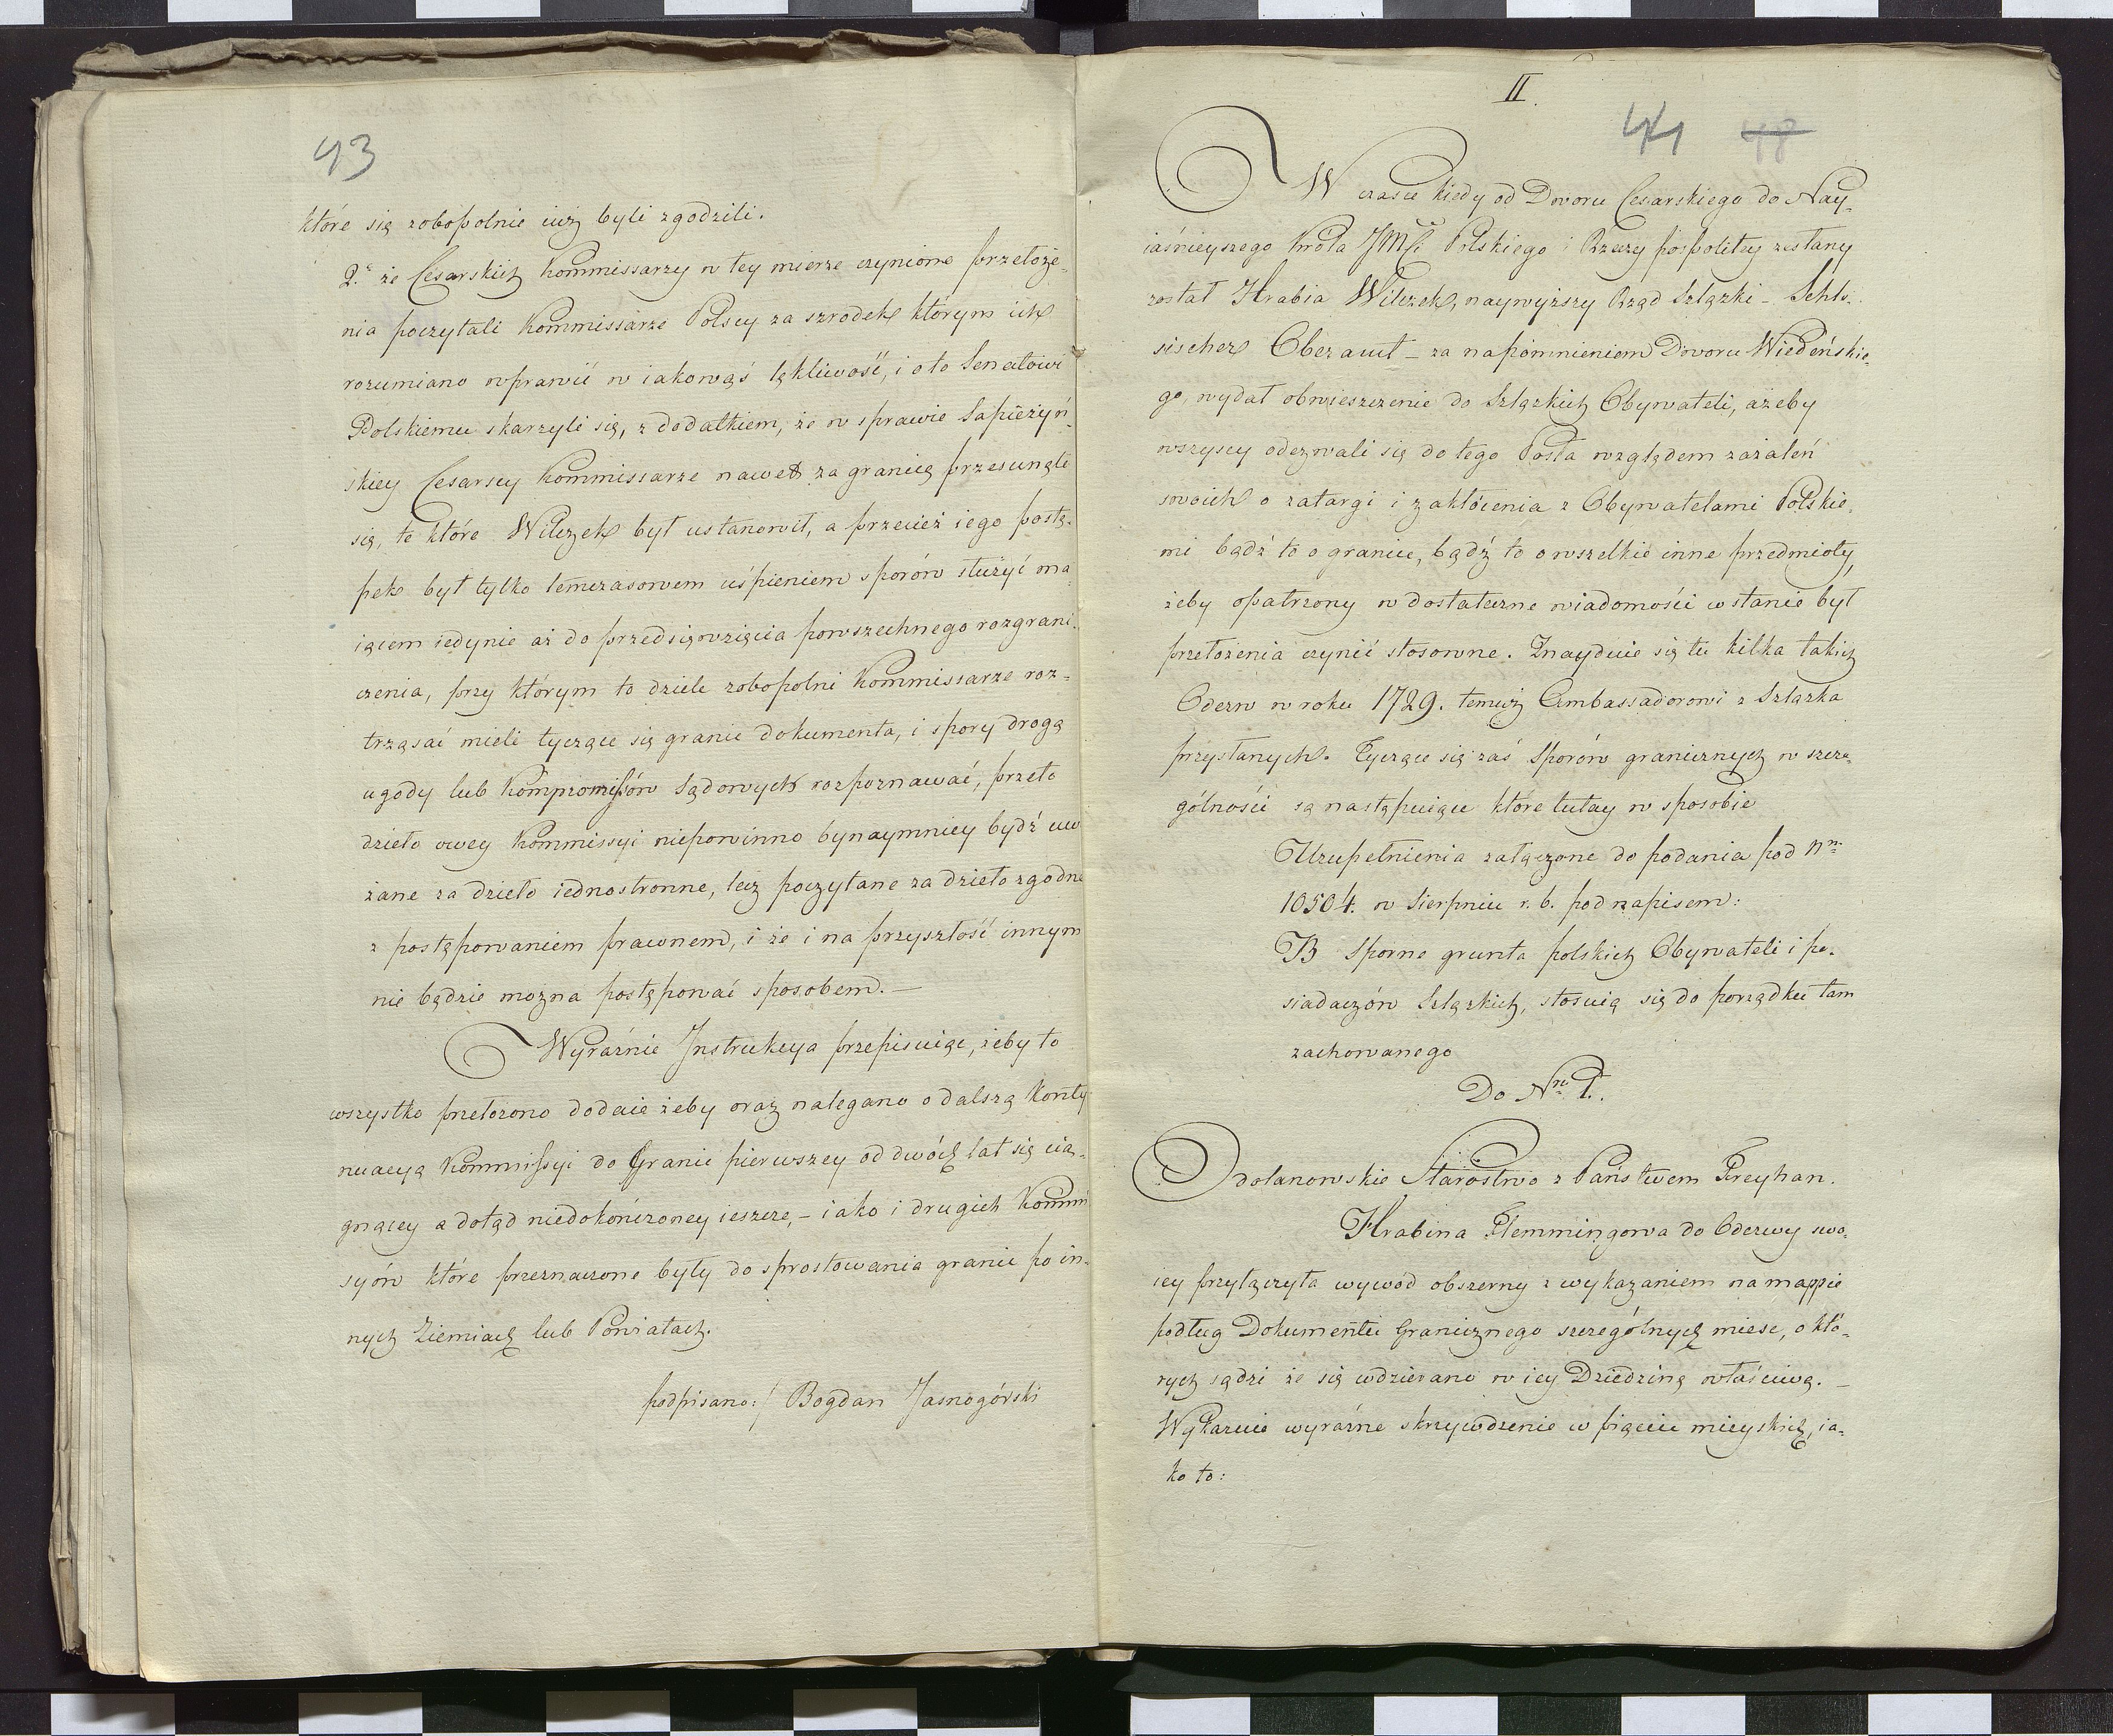 93
które się zobopolnie iuż byli zgodzili.
2.e że Cesarskich Kommissarzy w tey mierze czynione przełoże-
nia poczytali Kommissarze Polscy za szrodek którym ich
rozumiano wprawić w iakowąś lękliwość, i o to Senatowi
Polskiemu skarzyli się, z dodatkiem, że w sprawie Sapieżyń-
skiey Cesarscy Kommissarze nawet za granicę przesunęli
się, te które Wilczek był ustanowił, a przecież iego postę-
pek był tylko tęmczasowem uśpieniem sporów służyć ma
iącem iedynie aż do przedsięwzięcia powszechnego rozgrani-
czenia, przy którym to dziele zobopolni Kommissarze roz-
trząsać mieli tyczące się granic dokumenta, i spory drogą
ugody lub Kompromissów Sądowych rozpoznawać, przeto
dzieło owey Kommissyi niepowinno bynaymniey bydź uw
żane za dzieło iednostronne, lecz poczytane za dzieło zgodne
z postępowaniem prawnem, i że i na przyszłość innym
nie będzie można postępować sposobem. —
Wyraźnie Instrukcya przepisuiąc, żeby to
wszystko przełożono dodaie żeby oraz nalegano o dalszą Konty
nuacyą Kommissyi do Granic pierwszey od dwóch lat się cią-
gnącey a dotąd niedokończoney ieszcze, – iako i drugich Kommis
syów które przeznaczone były do sprostowania granic po in-
nych Ziemiach lub Powiatach.
podpisano:/ Bogdan Jasnogórski
II.
44 48
W czasie kiedy od Dworu Cesarskiego do Nay-
iaśnieyszego Króla JMci Polskiego i Rzeczy pospolitey zesłany
został Hrabia Wilczek, naywyższy Rząd Szląski – Schle-
sischer Oberamt – za napomnieniem Dworu Wiedeńskie-
go, wydał obwieszczenie do Szląskich Obywateli, ażeby
wszyscy odezwali się do tego Posła względem zażaleń
swoich o zatargi i zakłócenia z Obywatelami Polskie-
mi bądź to o granice, bądź to o wszelkie inne przedmioty,
żeby opatrzony w dostateczne wiadomości w stanie był
przełożenia czynić stosowne. Znayduie się tu kilka takich
Odezw w roku 1729. temuż Ambassadorowi z Szląska
przysłanych. Tyczące się zaś Sporów granicznych w szcze-
gólności są następuiące które tutay w sposobie
Uzupełnienia załączone do podania pod Nm
10504. w Sierpniu r. b. pod napisem:
B Sporne grunta polskich Obywateli i po-
siadaczów Szląskich, stosuią się do porządku tam
zachowanego
Do Nro 1.
Odolanowskie Starostwo z Państwem Freyhan.
Hrabina Flemmingowa do Odezwy swo-
iey przyłączyła wywód obszerny z wykazaniem na mappie
podług Dokumentu Granicznego szczególnych miesc, o któ-
rych sądzi że się wdzierano w iey Dziedzinę właściwą. –
Wykazuie wyraźne skrzywdzenie w pięciu mieyskich, ia-
ko to: